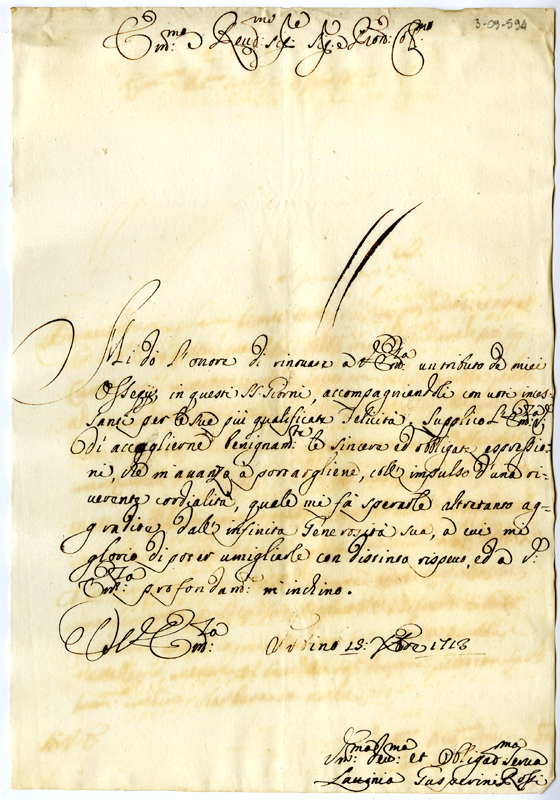 3-09-594
Em:ma e Reud:mo Sig:re Sig:e Pron: Col:mo
Mi dò l'onore di rinouare a V. Em:za un tributo de miei
Ossequij in questi SS. Giorni, accompagnandole con uoti inces=
santi per le sue più qualificate Felicità; Supplico l'Em:za V.
di accoglierne benignam:te le sincere ed obligate espressio=
ni, che m'auanzo à portargliene, coll' impulso d'una ri=
uerente cordialità, quale mi fà sperarle altretanto ag=
gradite dall' infinita Generosità sua, à cui mi
glorio di poter umigliarle con distinto rispetto, ed a V:
Em:za profondam: m'inchino.
Di V. Em:za
Vrbino 15: Xbre 1713
Vm:ma Deu:ma et Obligad:ma Serua
Lauinia Gasperini Rossi